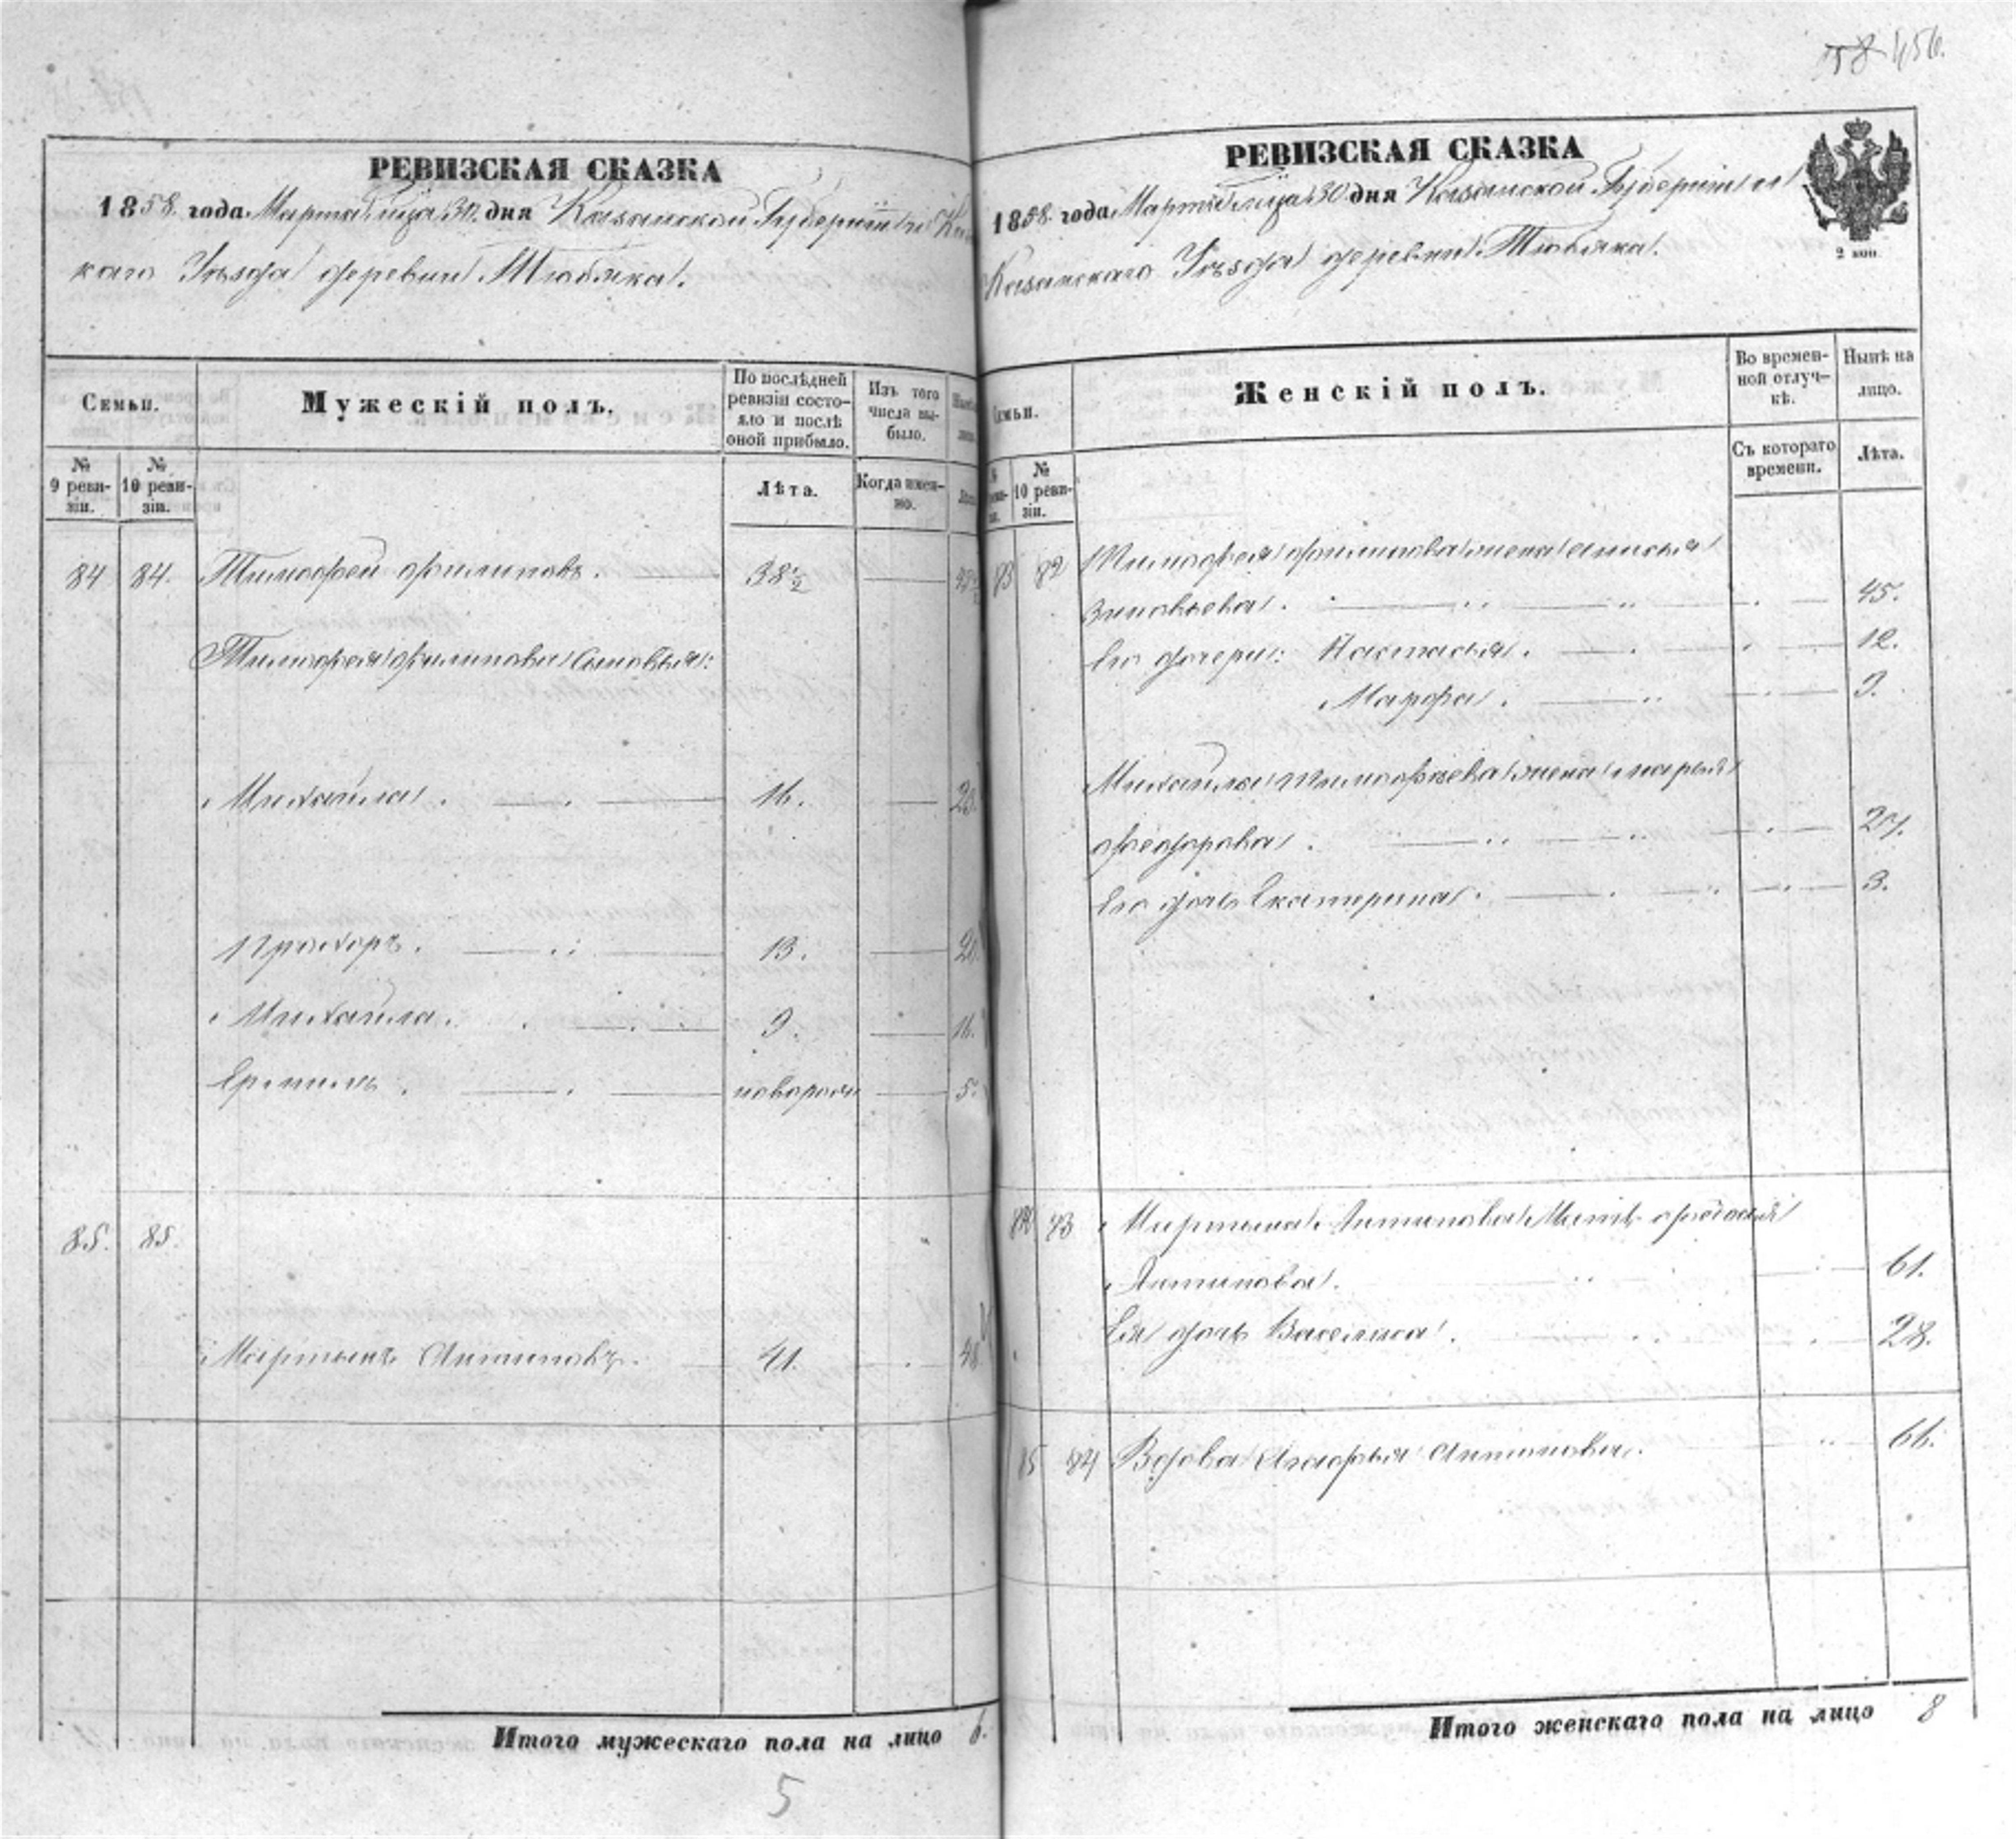 58 456.
РЕВИЗСКАЯ СКАЗКА
1858. года Марта м-ца 30. дня Казанской Губерніи
каго Уѣзда деревни Тюбяка.
Семьи.
Мужескій полъ.
По послѣдней ревизіи состо-
яло и послѣ
оной прибыло.
Изъ того
числа вы-
было.
№
9 реви-
зіи.
№
10 реви-
зіи.
Лѣта.
Когда имен-
но.
84 84. Тимофей Филиповъ. 38½
Тимофея Филипова сыновья:
Михайла. 16.
Прохоръ. 13.
Михайла. 9. 16.
Еремѣй. новорож 5.
85. 85.
Мартынъ Антиповъ. 41. 48
Итого мужескаго пола на лицо 6.
5
РЕВИЗСКАЯ СКАЗКА
1858. года Марта м-ца 30 дня Казанской Губерніи
Казанскаго Уѣзда деревни Тюбяка.
2 коп.
Семьи.
Женскій полъ.
Во времен-
ной отлуч-
кѣ.
Нынѣ на
лицо.
№
10 реви-
зіи.
Съ котораго
времени.
Лѣта.
83 82 Тимофея Филипова жена Анисья
Зиновьева. 45.
Его дочери: Настасья. 12.
Марфа. 9.
Михайлы Тимофѣева жена Марья
Федорова. 27.
Его дочь Екатерина. 3.
84 83 Мартына Антипова Мать Федосья
Антипова. 61.
Ея дочь Василиса. 28.
85 84 Вдова Агафья Антипова. 66.
Итого женскаго пола на лицо 8